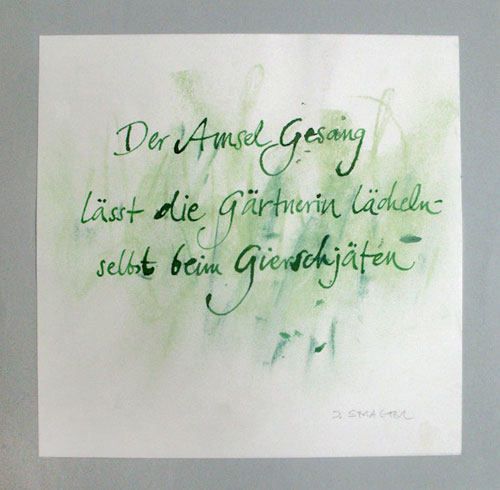 Der Amsel Gesang
lässt die Gärtnerin lächeln
selbst beim Gierschjäten